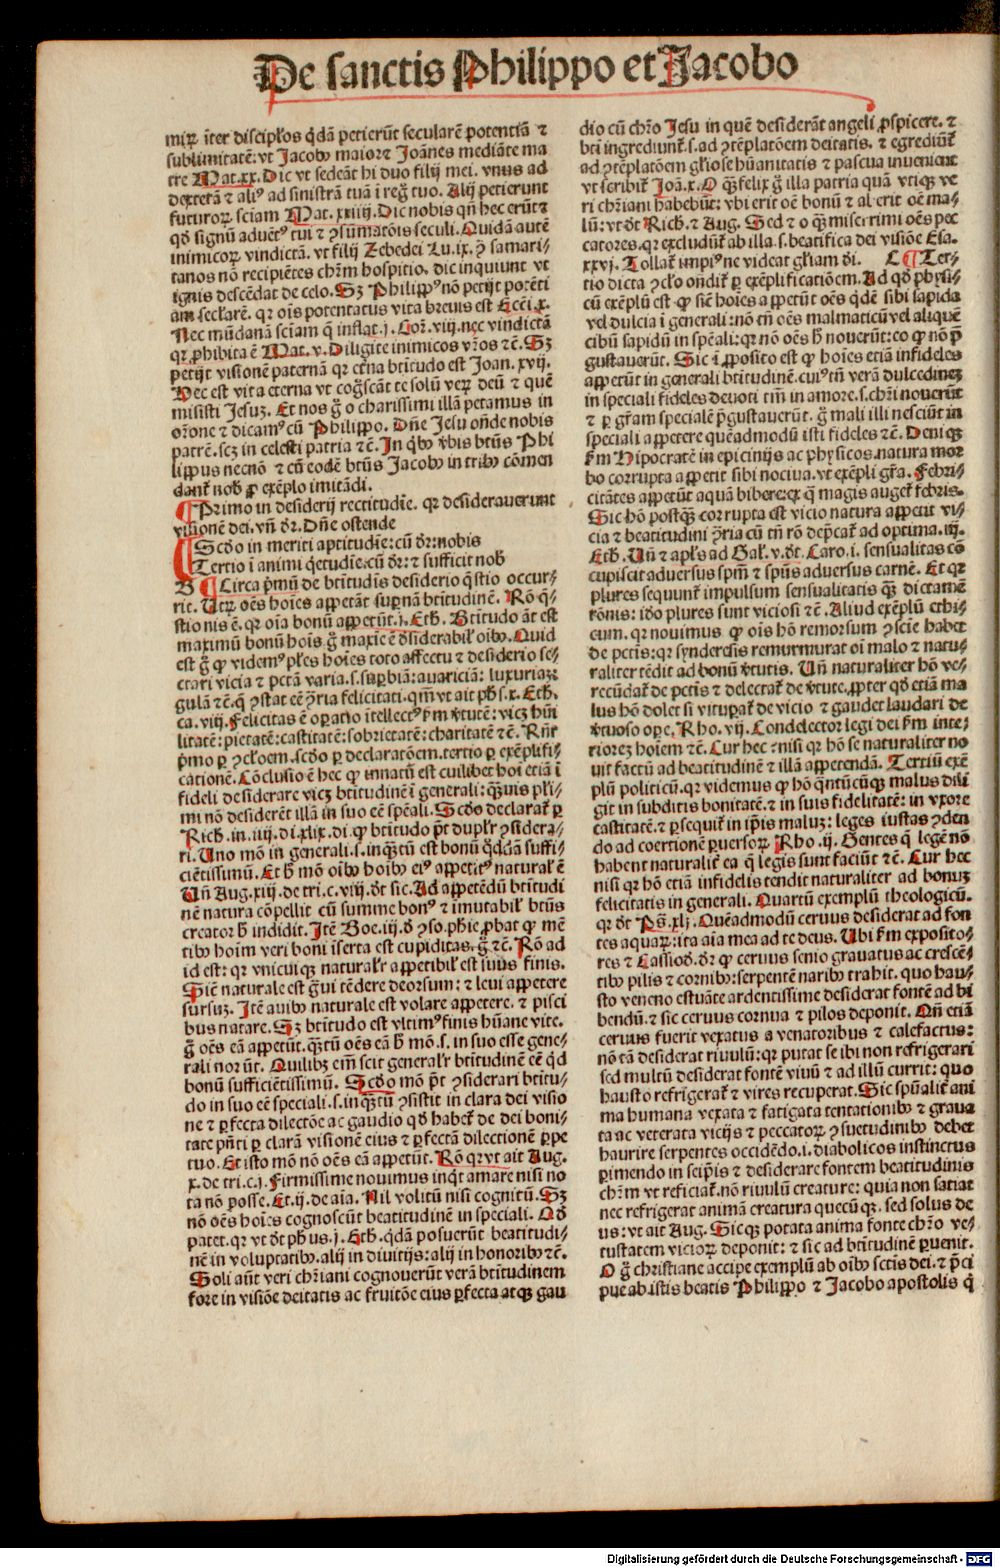 De sanctis Philippo et Jacobo
miꝝ. īter discip̄los q̄dā petierūt secularē potentiā ⁊
sublimitatē: vt Jacobꝰ maior ⁊ Joānes mediāte ma
tre Mat.xx. Dic vt sedeāt hi duo filij mei. vnus ad
dexterā ⁊ aliꝰ ad sinistrā tuā ī reg̃ tuo. Alij petierunt
futuroꝝ sciam Mat. xxiiij. Dic nobis qn̄ hec erūt ⁊
qđ signū aduētꝰ tui ⁊ ꝯsūmatōis seculi. Quidā autē
inimicoꝝ vindictā. vt filij Zebedei Lu.ix. ꝙ samari⸗
tanos nō recipiētes chr̄m hospitio. dic inquiunt vt
ignis descēdat de celo. Sꝫ Philippꝰ nō petijt potēti
am seclarē. qꝛ ois potentatus vita breuis est Ecc̄i.x.
Nec mūdanā sciam q̄ inflat. j. Cor. viij. nec vindictā
qꝛ ꝓhibita ē Mat. v. Diligite inimicos vr̄os ⁊c̄. Sꝫ
petijt visionē paternā qꝛ et̄na btītudo est Joan. xvij.
Hec est vita eterna vt cog̃scāt te solū veꝝ deū ⁊ quē
misisti Jesuꝫ. Et nos g̃ o charissimi illā petamus in
or̄one ⁊ dicamꝰ cū Philippo. Dn̄e Jesu on̄de nobis
patrē. scꝫ in celesti patria ⁊c̄. In q̄bꝰ v̄bis btūs Phi
lippus necnō ⁊ cū eodē btūs Jacobꝰ in tribꝰ cōmen
dant̄ nob̄ ꝓ exēplo imitādi.
Primo in desiderij rectitudīe. qꝛ desiderauerunt
visionē dei. vn̄ dr̄. Dn̄e ostende
Scđo in meriti aptitudīe: cū dr̄: nobis
Tertio ī animi q̄etudīe: cū dr̄: ⁊ sufficit nob̄
B Circa p̄mū de btītudīs desiderio q̄stio occur⸗
rit. Utꝝ oēs hoīes appetāt supnā btītudinē. Rō q̄⸗
stionis ē. qꝛ oia bonū appetūt. j. Eth. Btītudo āt est
maximū bonū hoīs. g̃ maxīe ē desiderabił oībꝰ. Quid
est g̃ ꝙ videmꝰ pl̄es hoīes toto affectu ⁊ desiderio se⸗
ctari vicia ⁊ pctā varia. s. supbiā: auariciā: luxuriaꝫ:
gulā ⁊c̄. q̄ ꝯstat eē ꝯ̄ria felicitati. qm̄ vt ait ph̄s. x. Eth.
ca. viij. Felicitas ē oꝑatio ītellectꝰ ẜm v̄tutē: vicꝫ hūi
litatē: pietatē: castitatē: sobrietatē: charitatē ⁊c̄. Rn̄r
p̄mo ꝑ ꝯcl̄oem. scđo ꝑ declaratōem. tertio ꝑ exēplifi⸗
cationē. Cōclusio ē hec ꝙ innatū est cuilibet hoī etiā ī
fideli desiderare vicꝫ btītudinē ī generali: q̄uis pl̄i⸗
mi nō desiderēt illā in suo eē sp̄eali. Scđo declarat̄ ꝑ
Rich. in. iiij. di. xlix. di. ꝙ btītudo pōt dupl̄r ꝯsidera⸗
ri. Uno mō in generali. s. inq̄tū est bonū q̄ddā suffi⸗
ciētissimū. Et h̄ mō oībꝰ hoībꝰ eiꝰ appetitꝰ naturał ē
Un̄ Aug. xiij. de tri. c. viij. dt̄ sic. Ad appetēdū btītudi
nē natura cōpellit cū summe bonꝰ ⁊ īmutabił btūs
creator h̄ indidit. Itē Boe. iij. đ ꝯso. ph̄ie ꝓbat ꝙ mē
tibꝰ hoīm veri boni īserta est cupiditas. g̃ ⁊c̄. Rō ad
id est: qꝛ vnicuiqꝫ naturał̄r appetibił est suus finis.
Siē naturale est g̃ui tēdere deorsum: ⁊ leui appetere
sursuꝫ. Itē auibꝰ naturale est volare appetere. ⁊ pisci
bus natare. Sꝫ btītudo est vltimꝰ finis hūane vite.
g̃ oēs eā appetūt. q̄tū oēs eā h̄ mō. s. in suo esse gene⸗
rali norūt. Quilibꝫ em̄ scit generał̄r btītudinē eē q̄d
bonū sufficiētissimū. Scđo mō pōt ꝯsiderari btītu⸗
do in suo eē speciali. s. inq̄tū ꝯsistit in clara dei visio
ne ⁊ ꝑfecta dilectōe ac gaudio qđ habet̄ de dei boni⸗
tate pn̄ti ꝑ clarā visionē eius ⁊ ꝑfectā dilectionē ꝑpe
tuo. Et isto mō nō oēs eā appetūt. Rō qꝛ vt ait Aug.
x. de tri. c. j. Firmissime nouimus inq̄t amare nisi no
ta nō posse. Et. ij. de aīa. Nil volitū nisi cognitū. Sꝫ
nō oēs hoīes cognoscūt beatitudinē in speciali. Qđ
patet. qꝛ vt dt̄ ph̄us. j. Eth. q̄dā posuerūt beatitudi⸗
nē in voluptatibꝰ. alij in diuitijs: alij in honoribꝰ ⁊c̄.
Soli aūt veri chr̄iani cognouerūt verā btītudinem
fore in visiōe deitatis ac fruitōe eius ꝑfecta atqꝫ gau
dio cū chr̄o Jesu in quē desiderāt angeli ꝓspicere. ⁊
bti ingrediunt̄. s. ad ꝯtēplatōem deitatis. ⁊ egrediūt̄
ad ꝯtēplatōem gl̄iose hūanitatis ⁊ pascua inuenient
vt scribit̄ Joā. x. O q̄ꝫ felix g̃ illa patria quā vtiqꝫ ve
ri chr̄iani habebūt: vbi erit oē bonū ⁊ aberit oē ma⸗
lū: vt dt̄ Rich. ⁊ Aug. Sed ⁊ o q̄ꝫ miserrimi oēs pec
catores. qꝛ excludūt̄ ab illa. s. beatifica dei visiōe Esa.
xxvj. Tollat̄ impiꝰ ne videat gl̄iam dei. C Ter⸗
tio dicta ꝯcl̄o ondit̄ ꝑ exēplificatiōem. Ad qđ physi⸗
cū exēplū est ꝙ siē hoīes appetūt oēs q̄dē sibi sapida
vel dulcia ī generali: nō tn̄ oēs malmaticū vel aliquē
cibū sapidū in sp̄eali: qꝛ nō oēs h̄ nouerūt: eo ꝙ nō p̄
gustauerūt. Sic ī ꝓposito est ꝙ hoīes etiā infideles
appetūt in generali btītudinē. cuiꝰ tn̄ verā dulcedineꝫ
in speciali fideles deuoti tm̄ in amore. s. chr̄i nouerūt
⁊ ꝑ gr̄am specialē p̄gustauerūt. g̃ mali illi nesciūt in
speciali appetere quēadmodū isti fideles ⁊c̄. Deniqꝫ
ẜm Hipocratē in epicinijs ac physicos. natura mor
bo corrupta appetit sibi nociua. vt exēpli gr̄a. Febri⸗
citātes appetūt aquā bibere: ex q̄ magis auget̄ febris.
Sic hō postq̄ꝫ corrupta est vicio natura appetit vi⸗
cia ⁊ beatitudini ꝯ̄ria cū tn̄ rō dep̄cat̄ ad optima. iij.
Eth. Un̄ ⁊ apl̄s ad Gal. v. dt̄. Caro. i. sensualitas cō
cupiscit aduersus spm̄ ⁊ spūs aduersus carnē. Et qꝛ
plures sequunt̄ impulsum sensualitatis q̄ꝫ dictamē
rōnis: iđo plures sunt viciosi ⁊c̄. Aliud exēplū ethi⸗
cum. qꝛ nouimus ꝙ oīs hō remorsum ꝯscīe habet
de pctīs: qꝛ synderesis remurmurat oī malo ⁊ natu⸗
raliter tēdit ad bonū v̄tutis. Un̄ naturaliter hō ve⸗
recūdat̄ de pctīs ⁊ delectat̄ de v̄tute. ꝓpter qđ etiā ma
lus hō dolet si vituꝑat̄ de vicio ⁊ gaudet laudari de
v̄tuoso oꝑe. Rho. vij. Condelector legi dei ẜm inte⸗
riorez hoīem ⁊c̄. Cur hec: nisi qꝛ hō se naturaliter no
uit factū ad beatitudinē ⁊ illā appetendā. Tertiū exē
plū politicū. qꝛ videmus ꝙ hō q̄ntūcūqꝫ malus dili
git in subditis bonitatē. ⁊ in suis fidelitatē: in vxore
castitatē. ⁊ ꝑsequit̄ in ip̄is maluꝫ: leges iustas ꝯden
do ad coertionē ꝑuersoꝝ Rho. ij. Gentes q̄ legē nō
habent naturalit̄ ea q̄ legis sunt faciūt ⁊c̄. Cur hec
nisi qꝛ hō etiā infidelis tendit naturaliter ad bonuꝫ
felicitatis in generali. Quartū exemplū theologicū.
qꝛ dt̄ Ps̄. xlj. Quēadmodū ceruus desiderat ad fon
tes aquaꝝ: ita aīa mea ad te deus. Ubi ẜm exposito⸗
res ⁊ Cassiođ. dr̄ ꝙ ceruus senio grauatus ac crescē⸗
tibꝰ pilis ⁊ cornibꝰ: serpentē naribꝰ trahit. quo hau⸗
sto veneno estuāte ardentissime desiderat fontē ad bi
bendū. ⁊ sic ceruus cornua ⁊ pilos deponit. Qn̄ etiā
ceruus fuerit vexatus a venatoribus ⁊ calefactus:
nō tā desiderat riuulū: qꝛ putat se ibi non refrigerari
sed multū desiderat fontē viuū ⁊ ad illū currit: quo
hausto refrigerat̄ ⁊ vires recuperat. Sic spūalit̄ ani
ma humana vexata ⁊ fatigata tentationibꝰ ⁊ graua
ta ac veterata vicijs ⁊ peccatoꝝ ꝯsuetudinibꝰ debet
haurire serpentes occidēdo. i. diabolicos instinctus
ꝑimendo in seip̄is ⁊ desiderare fontem beatitudinis
chr̄m vt reficiat̄. nō riuulū creature: quia non satiat
nec refrigerat animā creatura quecūqꝫ. sed solus de
us: vt ait Aug. Sicqꝫ potata anima fonte chr̄o ve⸗
tustatem vicioꝝ deponit: ⁊ sic ad btītudinē ꝑuenit.
O g̃ christiane accipe exemplū ab oībꝰ scīs dei. ⁊ p̄ci
pue ab istis beatis Philippo ⁊ Jacobo apostolis q̄
Digitalisierung gefördert durch die Deutsche Forschungsgemeinschaft - DFG